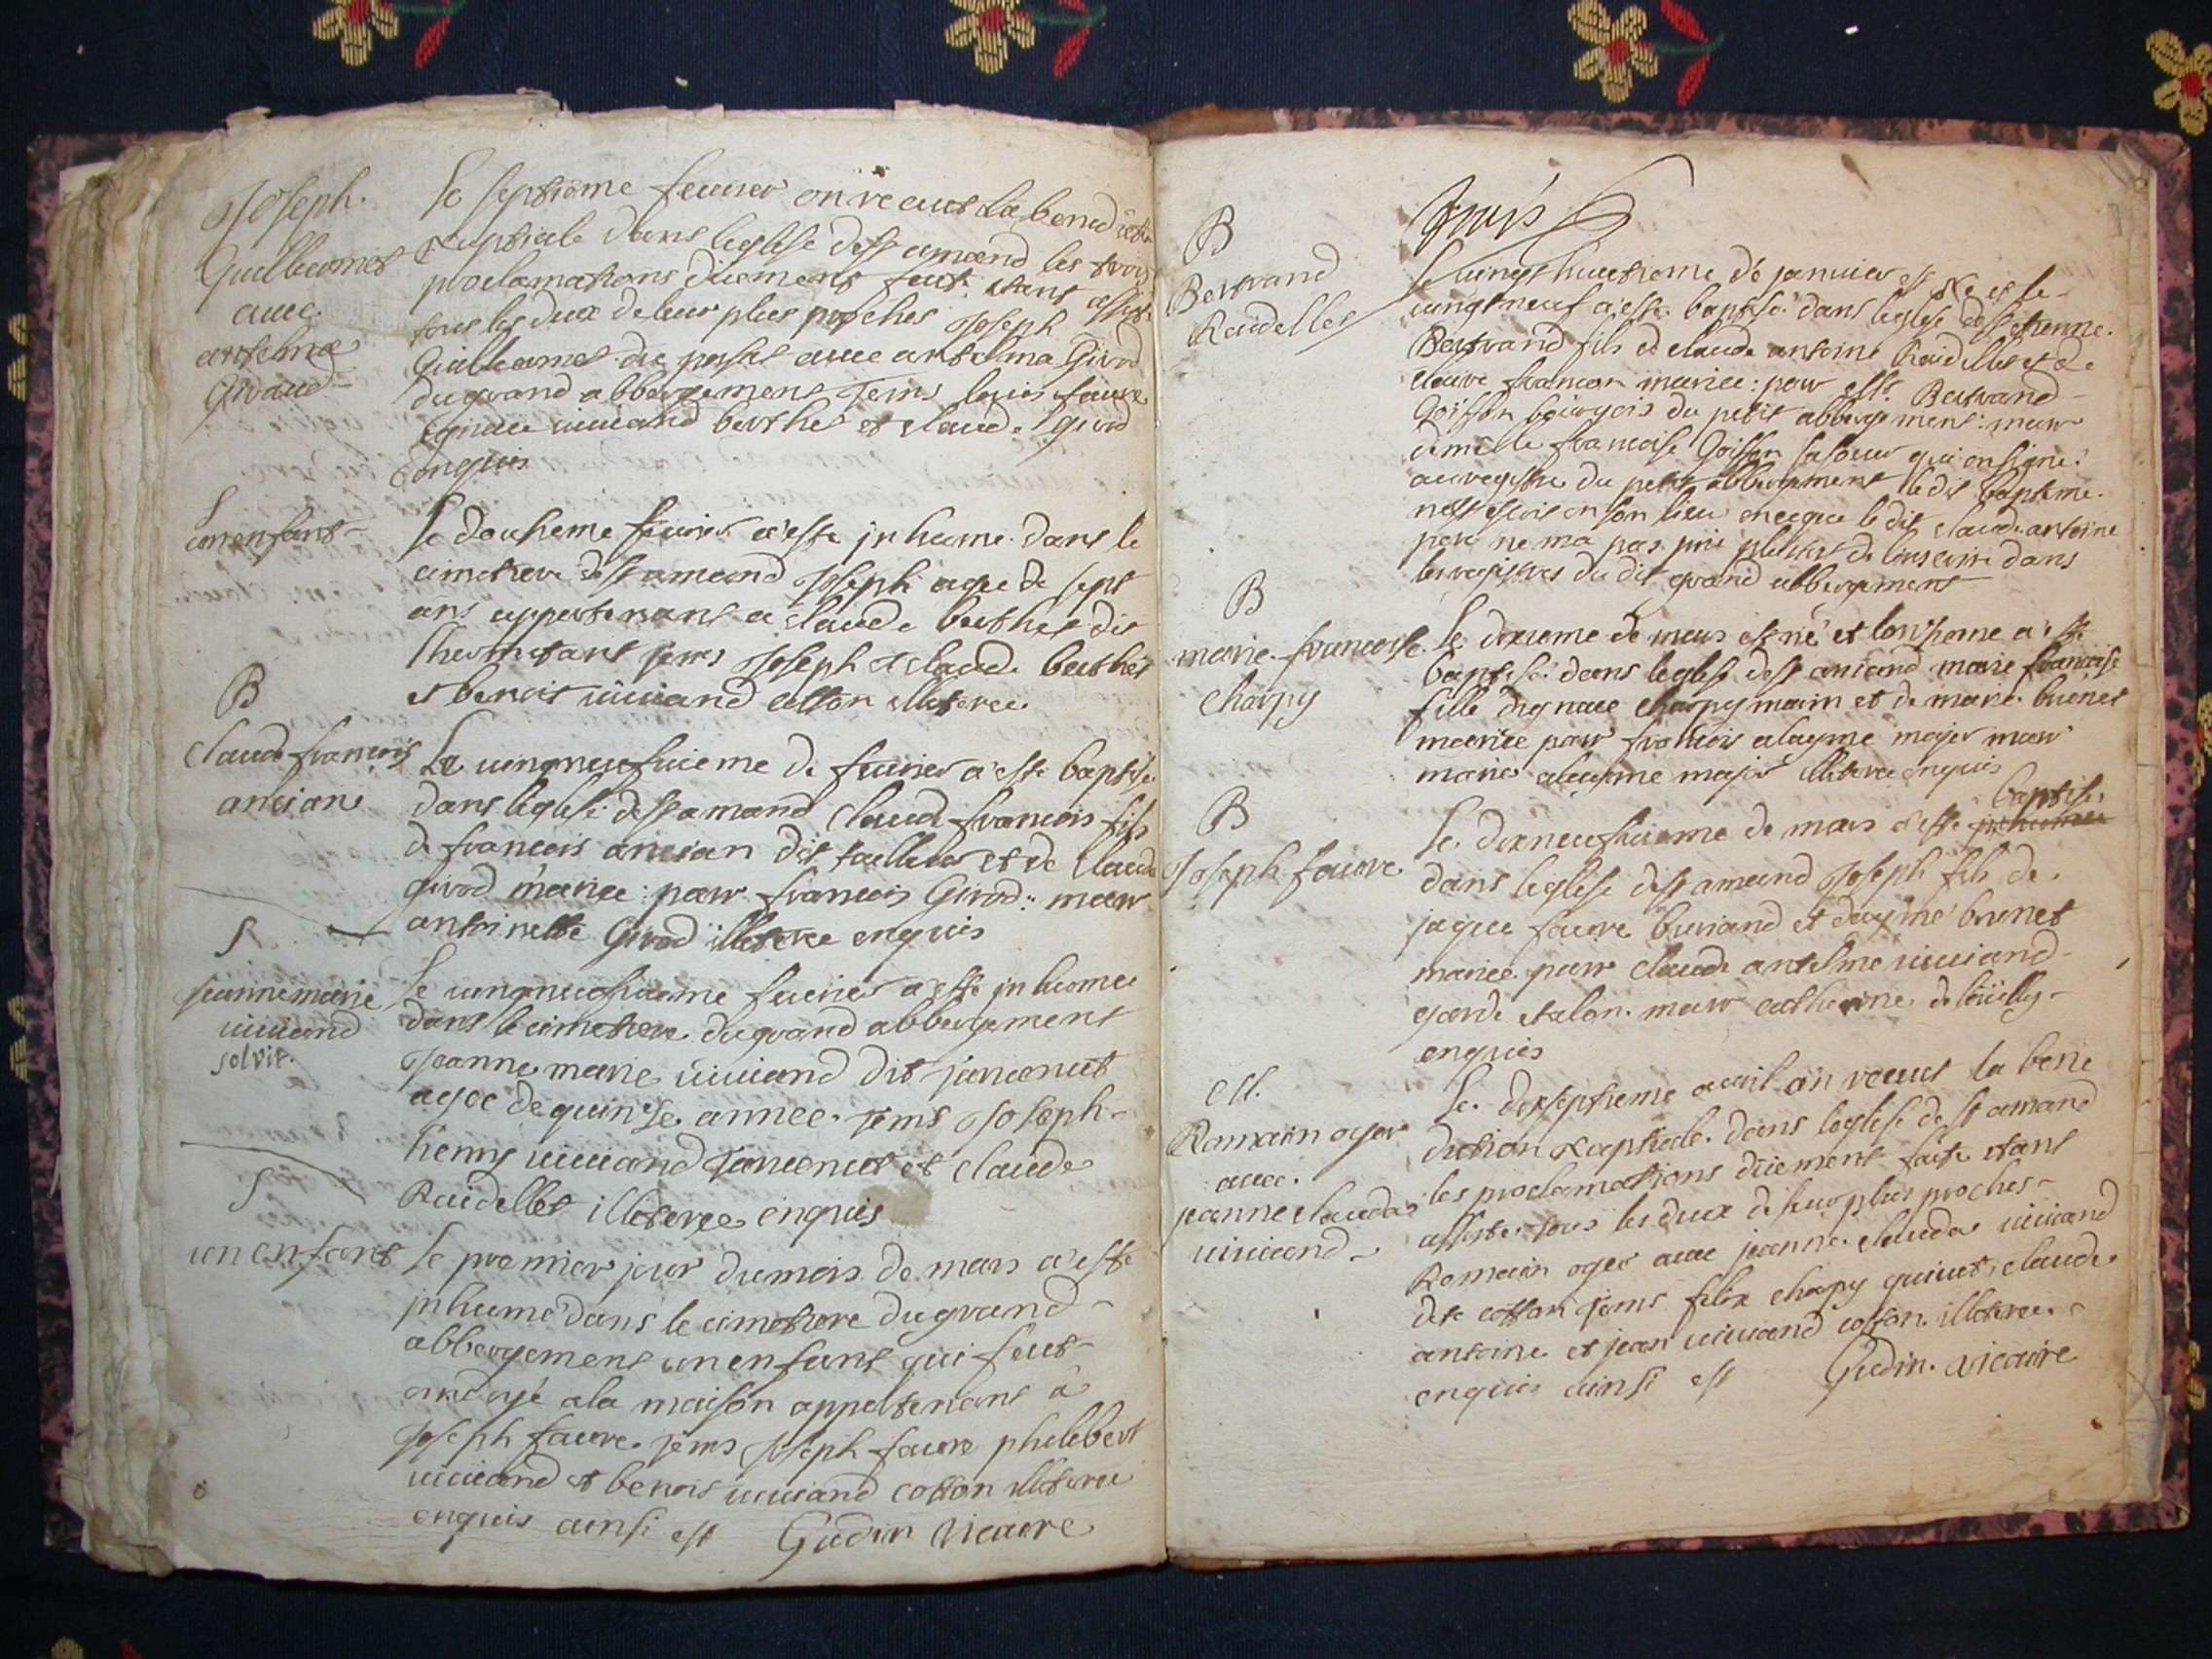 Joseph
Guilleaumet
avec
antelma
Giraud
Le septieme feurier on receut La benedictio
nuptiale dans leglise de st amand les trois
proclamations düement faite etant assiste
tous les dux de leur plus proches Joseph
Guilleaumet du avec antelma Girod
du grand abbergement Jems louis faure
ignace uiuiand berthet et claude Girod
enquis
S
un enfant
Le douhieme feurier a este jnhume dans le
cimetiere de st amand Joseph age de sept
ans appartenant a claude berthet dit
jems Joseph et claude berthet
et benoit uiuiand cotton illeteree
B
Claude francois
ancian
Le uingneufuieme de feurier a este baptise
dans leglise de st amand Claude francois fils
de francois ancian dit tailleur et de Claude
Girod mariee : parr francois Girod : marr
antoinette Girod illeteree enquis
S
jeanne marie
uiuiand
solvit
Le uingneufuieme feurier a este jnhumee
dans le cimetiere du grand abbergement
Jeanne marie uiuiand dit
agee de quinse annee jems Joseph
henry uiuiand et claude
Raidellet illeteree enquis
S
un enfant
Le premier jour du mois de mars a este
jnhumé dans le cimetiere du grand
abbergement un enfant qui feut
ondoyé a la maison appartenant a
Joseph faure jems Joseph faure philebert
uiuiand et benois uiuiand cotton illeteree
enquis ainsi est Gudin vicaire
B
Bertrand
Raidellet
Le uingt huictieme de januier est Ne et le
uingt neuf a este baptisé dans leglise de st etienne
Bertrand fils de claude antoine Raidellet et de
claire francon mariee : parr
Bertrand
Goiffon bourgois du petit abbergement : marr
demlle francoise Goiffon sa soeur qui on signe
au registre du petit abbergement le dit bapteme
nest escrit en son lieu le dit claude antoine
pere ne ma pas prie plustost de linscrire dans
les registres du dit grand abbergement
B
marie francoise
Charpy
Le dixieme de mars est né et lonzieme a este
baptisé dans leglise de st amand marie francoise
fille dignace Charpy et de marie brunet
mariee parr francois aleyme major marr
marie aleyme major illeteree enquis
B
Joseph faure
Le dixneufuieme de mars a este jnhumee baptise
dans leglise de st amand Joseph fils de
jaque faure buriand et daymé brunet
mariee parr claude antelme uiuiand
garde etalon marr catherine de
enquis
M
Romain oger
avec
jeanne clauda
uiuiand
Le dixseptieme auril on receut la bene
diction nuptiale dans leglise de st amand
les proclamations düement faite etant
assiste tous les dux de leur plus proches
Romain oger avec jeanne clauda uiuiand
dite cotton jems felix charpy claude
antoine et jean uiuiand cotton illeteree
enquis ainsi est Gudin vicaire